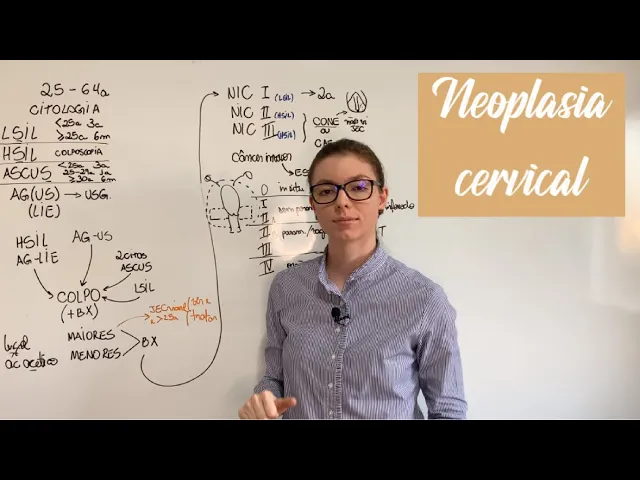 Neoplasia
cervical
25-64a
CITOLOGIA
LSIL <25a 3a
≥25a 6m
HSIL COLPOSCOPIA
ASCUS <25a 3a
25-29a 1a
≥30a 6m
AG(US) → USG.
(LIE)
HSIL
AG-LIE
AG-US
2 CITOS
ASCUS
LSIL
COLPO
(+BX)
MAIORES
MENORES
BX
lugol
ac acético
NIC I (LSIL) → 2a
NIC II (HSIL)
NIC III (HSIL)
CONE
ou
não vi
JEC
Câncer
0 in situ
I
II
III
IV